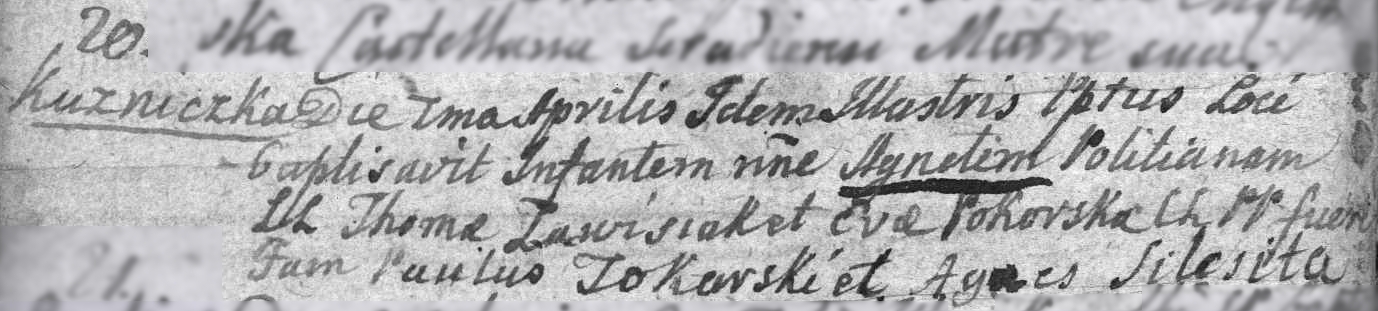 20. ska Castellana Siradiensi Matre sua
Kuzniczka Die 7ma Aprilis Idem Illustris Pptus Loci
baptisavit Infantem nñe Agnetem Politianam
LL Thomæ Zawisiak et Evæ Pokorska CL PP fueri
Fam Paulus Tokarski et Agnes Silesita
21.